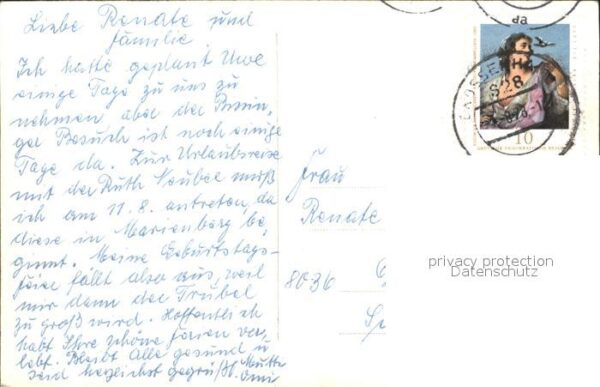 Liebe Renate und
Familie
Ich hatte geplant Uwe
einige Tage zu uns zu
nehmen aber der
Besuch ist noch einige
Tage da. Zur Urlaubsreise
mit der Ruth Neuber muß
ich am 11.8. antreten, da
diese in Marienberg be-
ginnt. Meine Geburtstags-
feier fällt also aus, weil
mir dann der Trubel
zu groß wird. Hoffentlich
habt Ihre schöne Ferien ver-
lebt. Bleibt Alle gesund u
seid herzlichst gegrüßt Mutti
Omi
da
28
10
Frau
Renate
8036
privacy protection
Datenschutz